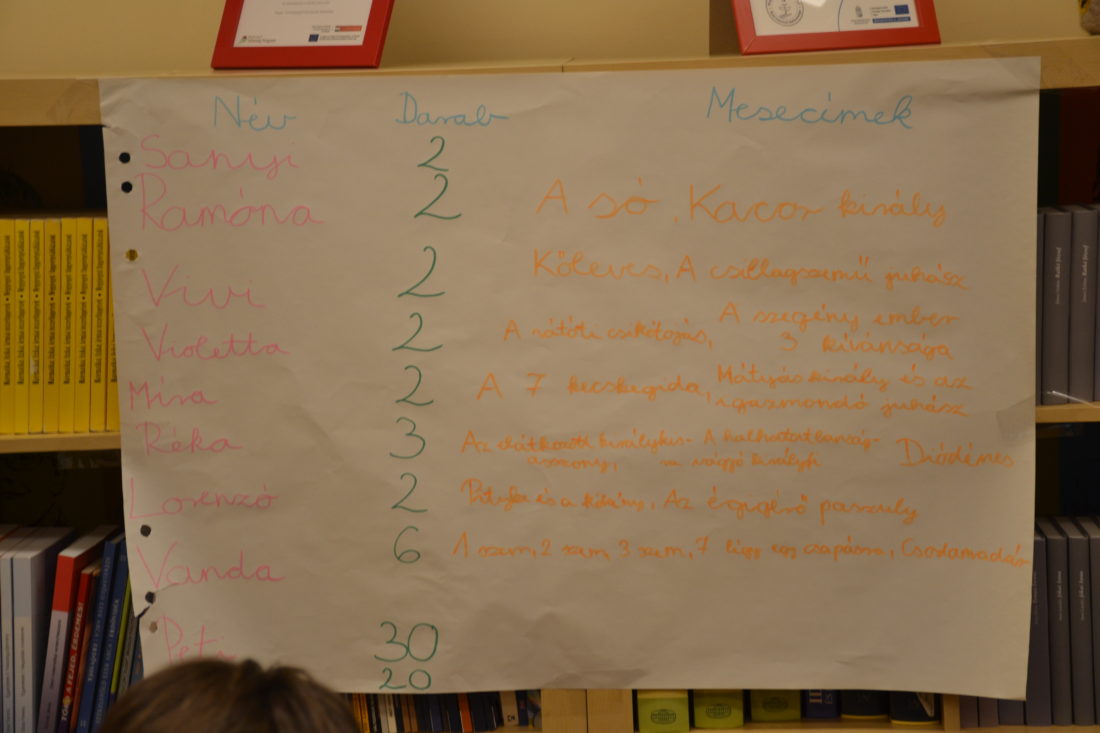 Név Darab Mesecímek
Sanyi 2
Ramóna 2 A só, Kacor király
Vivi 2 Kőleves, A csillagszemű juhász
Violetta 2 A rátóti csikótojás, A szegény ember
3 kívánsága
Mira 2 A 7 kecskegida, Mátyás király és az
igazmondó juhász
Réka 3 Az elátkozott királykis- A halhatatlanság- Diódénes
asszony, ra vágyó királyfi
Lorenzó 2 és a kökény, Az égigérő paszuly
Vanda 6 1 szem, 2 szem, 3 szem, 7 légy egy csapásra, Csodamadár
Peti 30
20